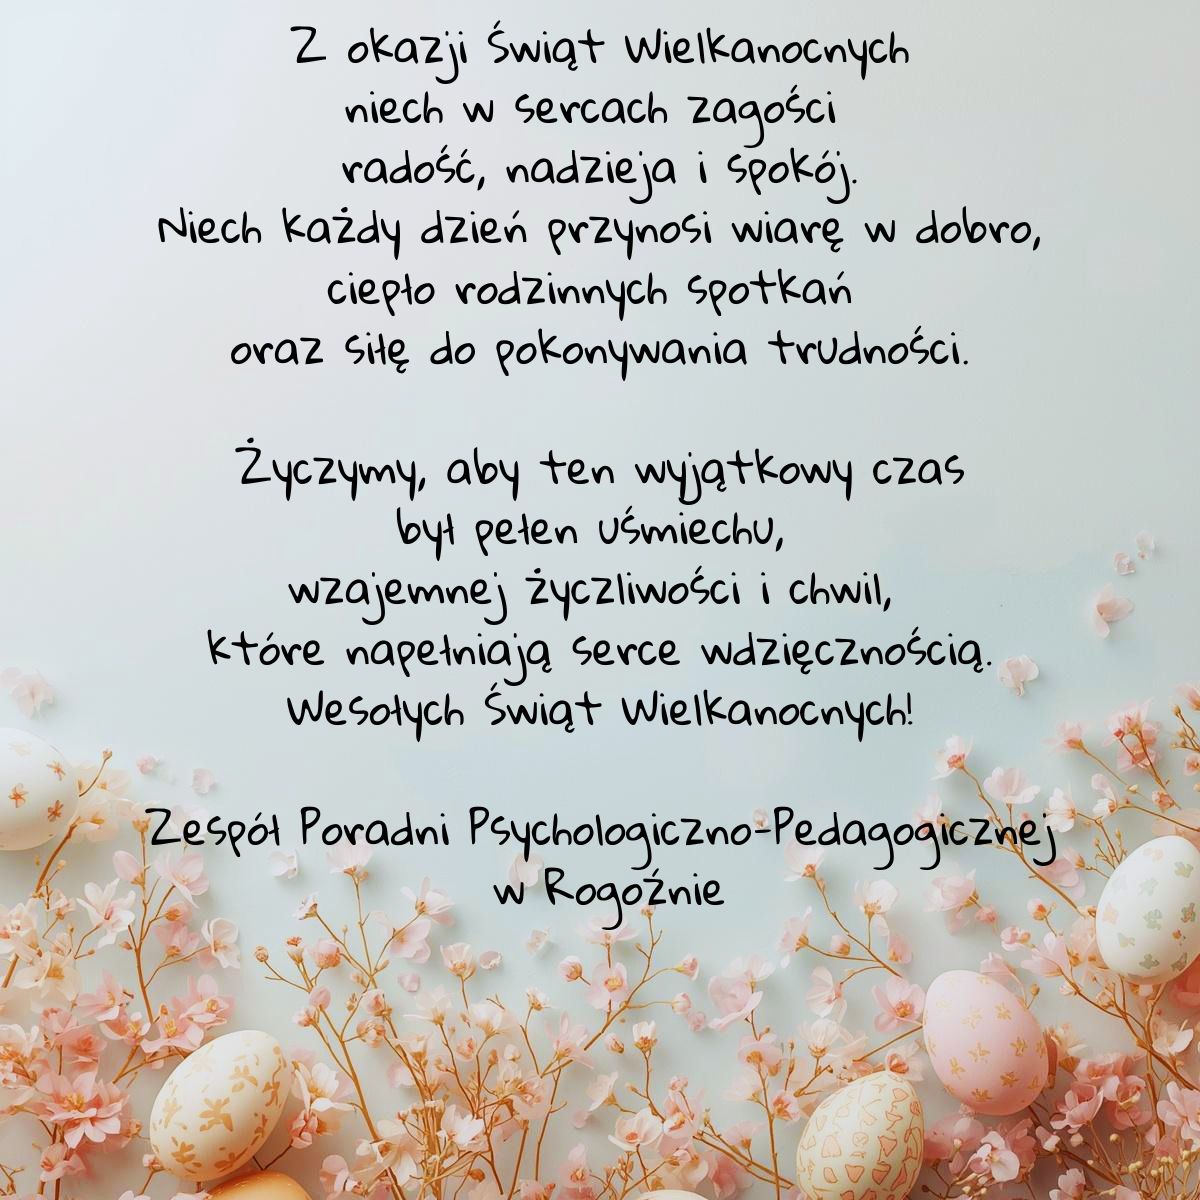 Z okazji Świąt Wielkanocnych
niech w sercach zagości
radość, nadzieja i spokój.
Niech każdy dzień przynosi wiarę w dobro,
ciepło rodzinnych spotkań
oraz siłę do pokonywania trudności.
Życzymy, aby ten wyjątkowy czas
był pełen uśmiechu,
wzajemnej życzliwości i chwil,
które napełniają serce wdzięcznością.
Wesołych Świąt Wielkanocnych!
Zespół Poradni Psychologiczno-Pedagogicznej
w Rogoźnie